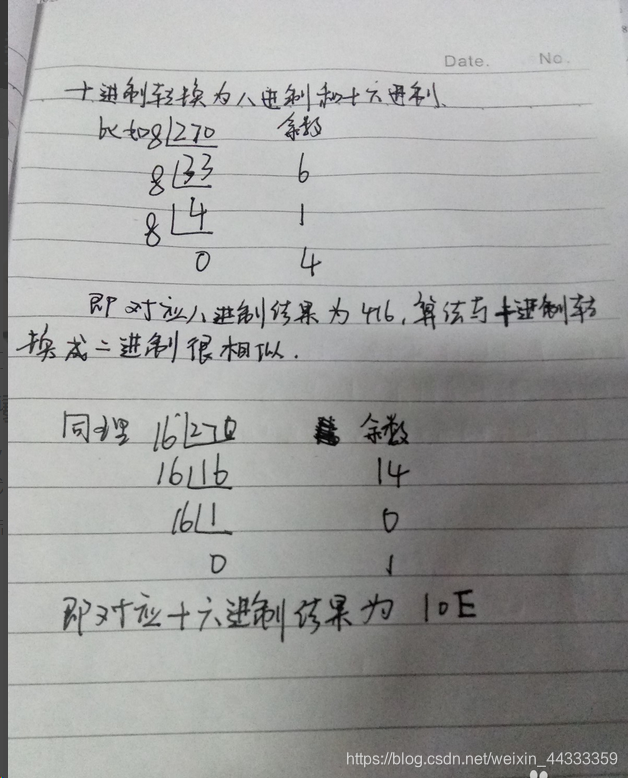 Date. No.
十进制转换为八进制和十六进制、
比如8 270 余数
8 33 6
8 4 1
0 4
即对应八进制结果为416，算法与十进制转
换成二进制很相似．
同理 16 270 余数
16 16 14
16 1 0
0 1
即对应十六进制结果为 10E
https://blog.csdn.net/weixin_44333359